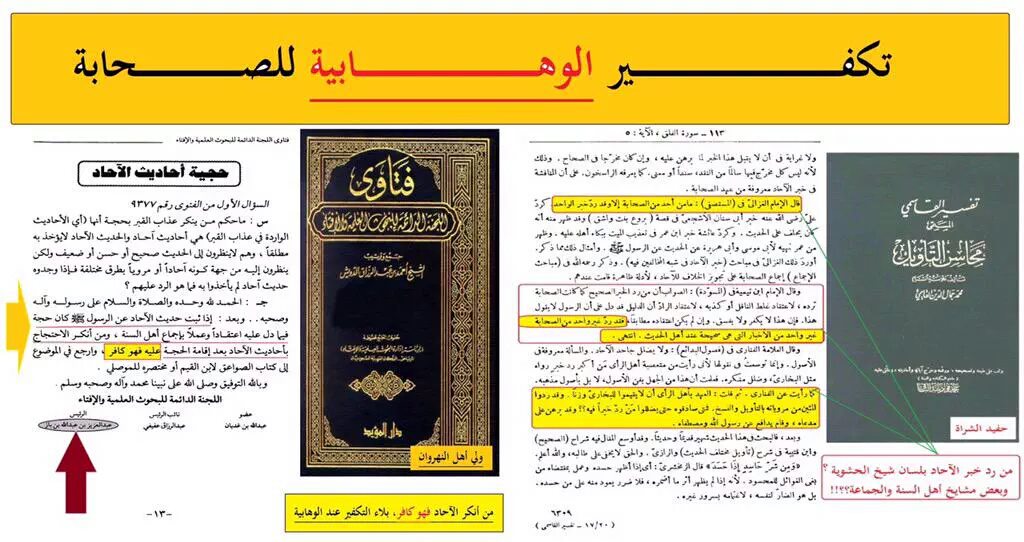 تكفير الوهابية للصحابة
فتاوى اللجنة الدائمة للبحوث العلمية والإفتاء
حجية أحاديث الآحاد
السؤال الأول من الفتوى رقم ٩٣٧٧
س : ماحكم من ينكر عذاب القبر بحجة أنها (أي الأحاديث
الواردة في عذاب القبر) هي أحاديث آحاد والحديث الآحاد لايؤخذ به
مطلقاً ، وهم لاينظرون إلى حديث صحيح أو حسن أو ضعيف ولكن
ينظرون إليه من جهة كونه آحاداً أو مروياً بطرق مختلفة فإذا وجدوه
حديث آحاد لم يأخذوا به فيا هو الرد عليهم ؟
جـ : الحمد لله وحده والصلاة والسلام على رسوله وآله
وصحبه .. وبعد : إذا ثبت حديث الآحاد عن الرسول ﷺ كان حجة
فيما دل عليه اعتقاداً وعملاً بإجماع أهل السنة ، ومن أنكر الاحتجاج
بأحاديث الآحاد بعد إقامة الحجة عليه فهو كافر ، وارجع في الموضوع
إلى كتاب الصواعق لابن القيم أو مختصره للموصلي .
وبالله التوفيق وصلى الله على نبينا محمد وآله وصحبه وسلم .
اللجنة الدائمة للبحوث العلمية والإفتاء
عضو نائب الرئيس الرئيس
عبدالله بن غديان عبدالرزاق عفيفي عبدالعزيز بن عبدالله بن باز
−١٣−
فتاوى
اللجنة الدائمة للبحوث العلمية والإفتاء
جمع وترتيب
الشيخ أحمد بن عبد الرزاق الدويش
دار المؤيد
ولي أهل النهروان
من أنكر الآحاد فهو كافر، بلاء التكفير عند الوهابية
١١٣ ــ سورة الفلق ، الآية : ٥
ولا غرابة في أن لا يتقبل هذا الخبر لما برهن عليه ، وإن كان مخرجاً في الصحاح . وذلك
لأنه ليس كل مخرج فيها سالماً من النقد ، سنداً أو معنى . كما يعرفه الراسخون . على أن المناقشة
في خبر الآحاد معروفة من عهد الصحابة .
قال الإمام الغزاليّ في (المستصفى) : ما من أحد من الصحابة إلا وقد ردّ خبر الواحد كردّ
عليّ رضي الله عنه خبر أبي سنان الأشجعي في قصة ( بروع بنت واشق ) وقد ظهر منه أنه
كان يحلف على الحديث . وكردّ عائشة خبر ابن عمر في تعذيب الميت ببكاء أهله عليه . وظهر
من عمر نهيه لأبي موسى وأبي هريرة عن الحديث عن الرسول ﷺ . وأمثال ذلك مما ذكر .
أورد ذلك الغزاليّ في مباحث ( خبر الآحاد في شبه المخالفين فيه ) . وذكر رحمه الله في (مباحث
الإجماع ) إجماع الصحابة على تجويز الخلاف للآحاد ، لأدلة ظاهرة قامت عندهم .
وقال الإمام ابن تيمية في (المسوّدة) : الصواب أن من رد الخبر الصحيح كما كانت الصحابة
ترده ، لاعتقاده غلط الناقل أو كذبه ، لاعتقاد الرادّ أن الدليل قد دل على أن الرسول لا يقول
هذا. فإن هذا لا يكفر ولا يفسق . وإن لم يكن اعتقاده مطابقاً ، فقد ردّ غير واحد من الصحابة
غير واحد من الأخبار التي هي صحيحة عند أهل الحديث . انتهى .
وقال العلامة الفناري في (فصول البدائع) : ولا يضلل جاحد الآحاد . والمسألة معروفة في
الأصول . وإنما توسعت في نقولها لأني رأيت من متعسفة أهل الرأي من أكبر رد خبر رواه
مثل البخاريّ ، وضلل منكره . فعلمت أن هذا من الجهل بفن الأصول ، لا بل بأصول مذهبه .
كما رأيت عن الفناري . ثم قلت : العهد بأهل الرأي أن لا يقيموا للبخاريّ وزناً . وقد ردوا
المئين من مروياته بالتأويل والنسخ . فمتى صادقوه حتى يضللوا من رد خبراً فيه ؟؟ وقد برهن على
مدعاه ، وقام يدافع عن رسول الله ومصطفاه .
وبعد ، فالبحث في هذا الحديث شهير قديماً وحديثاً . وقد أوسع المقال فيه شراح ( الصحيح )
وابن قتيبة في شرح ( تأويل مختلف الحديث ) والرازيّ . والحق لا يخفى على طالبه ، والله أعلم .
«وَمِن شَرِّ حَاسِدٍ إِذَا حَسَدَ» قال الزمخشريّ : أي إذا ظهر حسده وعمل بمقتضاه من
بغي الغوائل للمحسود . لأنه إذا لم يظهر أثر ما أضمره ، فلا ضرر يعود منه على من حسده .
بل هو الضارّ لنفسه ، لاغتمامه بسرور غيره .
٦٣٠٩
( ١٧/٢٠ ــ تفسير القاسمي )
تفسير القاسمي
المسمى
محاسن التأويل
محمد جمال الدين القاسمي
حفيد الشراة
من رد خبر الآحاد بلسان شيخ الحشوية ؟
وبعض مشايخ أهل السنة والجماعة؟؟!!